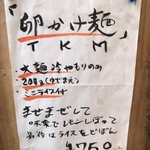 卵かけ麺
TKM
太麺冷やもりのみ
200g(ゆでまえ)
ミニライス付
まぜまぜして
味変でレモンしぼって
最後はライスをどぼん
¥750